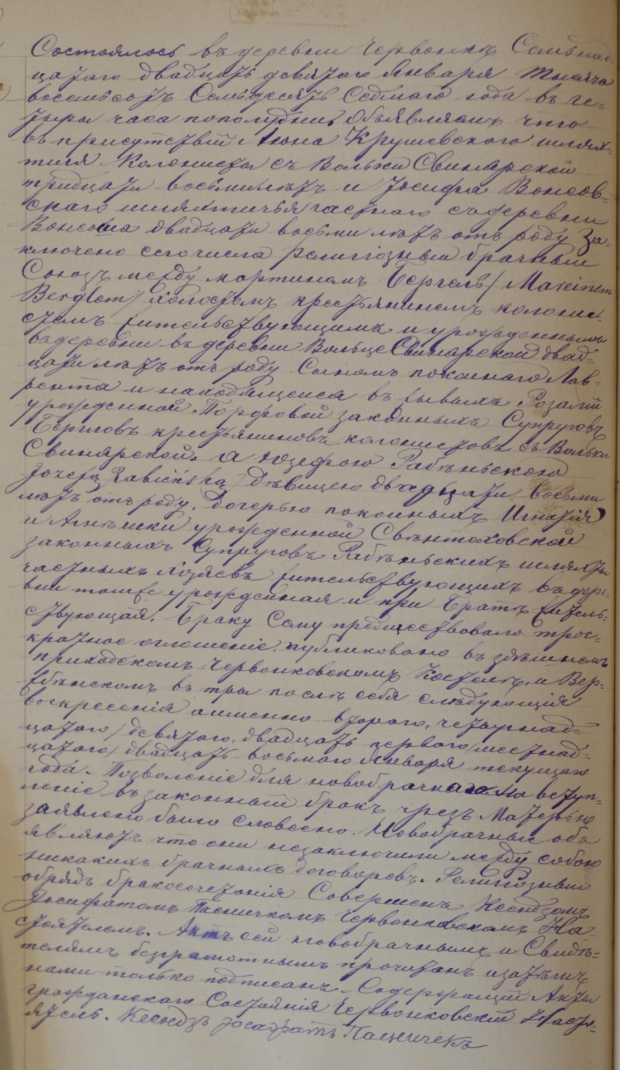 Состоялось въ деревни Червонкъ Семьнад-
цатаго двадцать девятаго Января тысяча
восемьсотъ Семьдесятъ Седмаго года въ че-
тыри часа пополудни. Объявляемъ что
въ присутствіи Крушевскаго шлях-
тича Колониста съ Вольки Свинарской
тридцати восьми лѣтъ и Іосифа Вонсов-
скаго шляхтича съ деревни
Вонсоша двадцати восьми лѣтъ отъ роду За-
ключено сего числа религіозный брачный
Союзъ между Мартиномъ Бергелъ / Marcinem
холостымъ крестьяниномъ колони-
стомъ жительствующимъ и урожденнымъ
въ деревни въ деревни Вольце Свинарской двад-
цати лѣтъ отъ роду Сыномъ покойнаго Лав-
рента и находящейся въ живыхъ Розалiи
урожденной законныхъ Супруговъ
крестьяновъ колонистовъ съ Вольки
Свинярской. а Юзефою Рабѣньскою
Józefą Rabieńską / Дѣвицею двадцати восьми
лѣтъ отъ роду. Дочерью покойныхъ Игнатія
и Агнѣшки урожденной Свѣнтоховской
законныхъ Супруговъ Рабѣньскихъ шляхты
частныхъ жительствующихъ въ дер-
вни урожденная и при Братѣ житель-
ствующая. Браку Сему предшествовало трех-
кратное оглошеніе, публиковано въ здѣшнемъ
приходскомъ Червонковскомъ Костелѣ и Вер-
бинскомъ въ три послѣ себя слѣдующія
воскресенія аименно втораго, четырнад-
цатаго / девятаго, двадцать перваго / шестнад-
цатаго / двадцать восьмаго Января текущаго
года. Позволеніе для новобрачнаго на вступ-
леніе въ законный бракъ чрезъ Матерью
заявлено было словесно. Новобрачные объ-
являютъ что они незаключили между собою
никакихъ брачныхъ договоровъ. Религіозный
обрядъ бракосочетанія Совершенъ Ксендзомъ
Іосафатомъ Пасничкомъ Червонковскомъ На-
стоятелемъ. Актъ сей новобрачнымъ и Свидѣ-
телямъ безграмотнымъ прочитанъ изатѣмъ
нами только подписанъ. Содержащій Акты
гражданскаго Состоянія Червонковскій Насто-
ятель. Ксендзъ Іосафатъ Пасничекъ